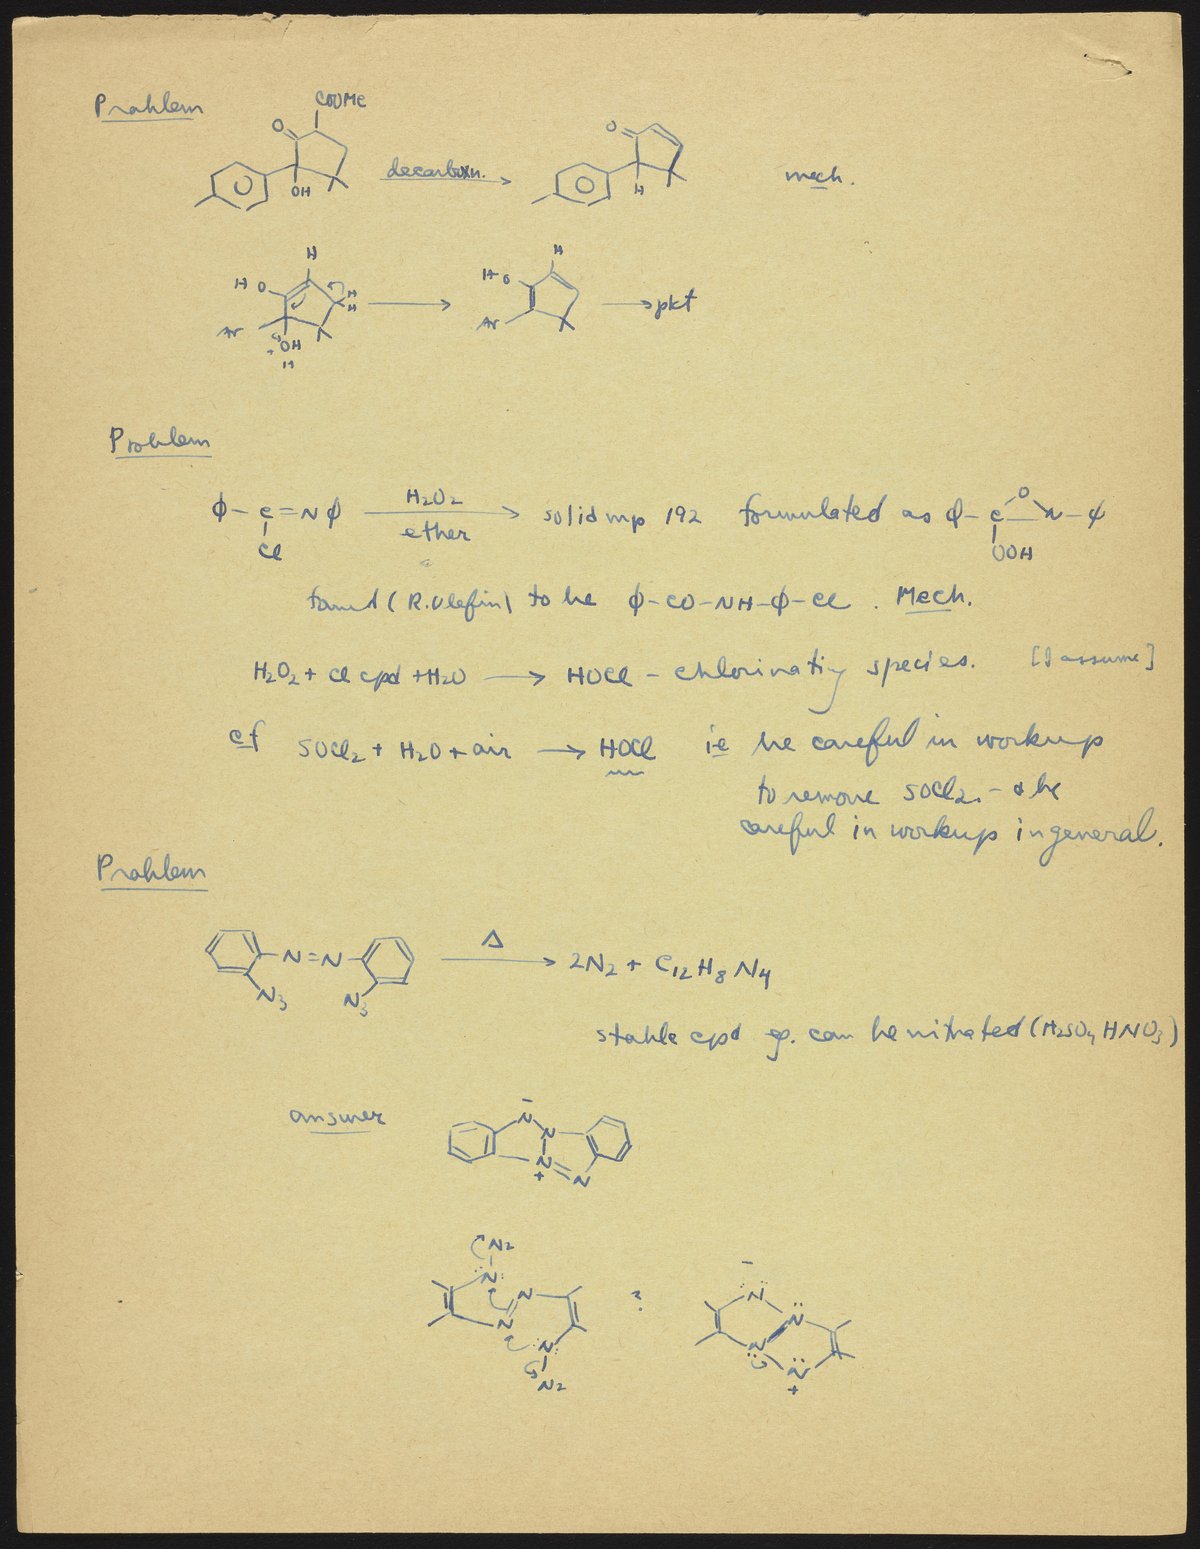 Problem
COOMe
O
OH
decarboxn.
O
H
mech.
H
H O
H
H
Ar
+
OH
H
H
H O
Ar
pkt
Problem
ϕ-C=Nϕ
Cl
H2O2
ether
solid mp 192 formulated as ϕ-C-N-ϕ
O
OOH
found (R. Olefin) to be ϕ-CO-NH-ϕ-Cl. Mech.
H2O2 + Cl cpd + H2O → HOCl - chlorinating species. [I assume]
cf SOCl2 + H2O + air → HOCl ie be careful in workup
to remove SOCl2. - & be
careful in workup in general.
Problem
N=N
N3
N3
Δ
2N2 + C12H8N4
stable cpd eg. can be nitrated (H2SO4 HNO3)
answer
-
N
N
N
+
N
N2
N
N
N
N
N2
?
-
N
N
N
N
+